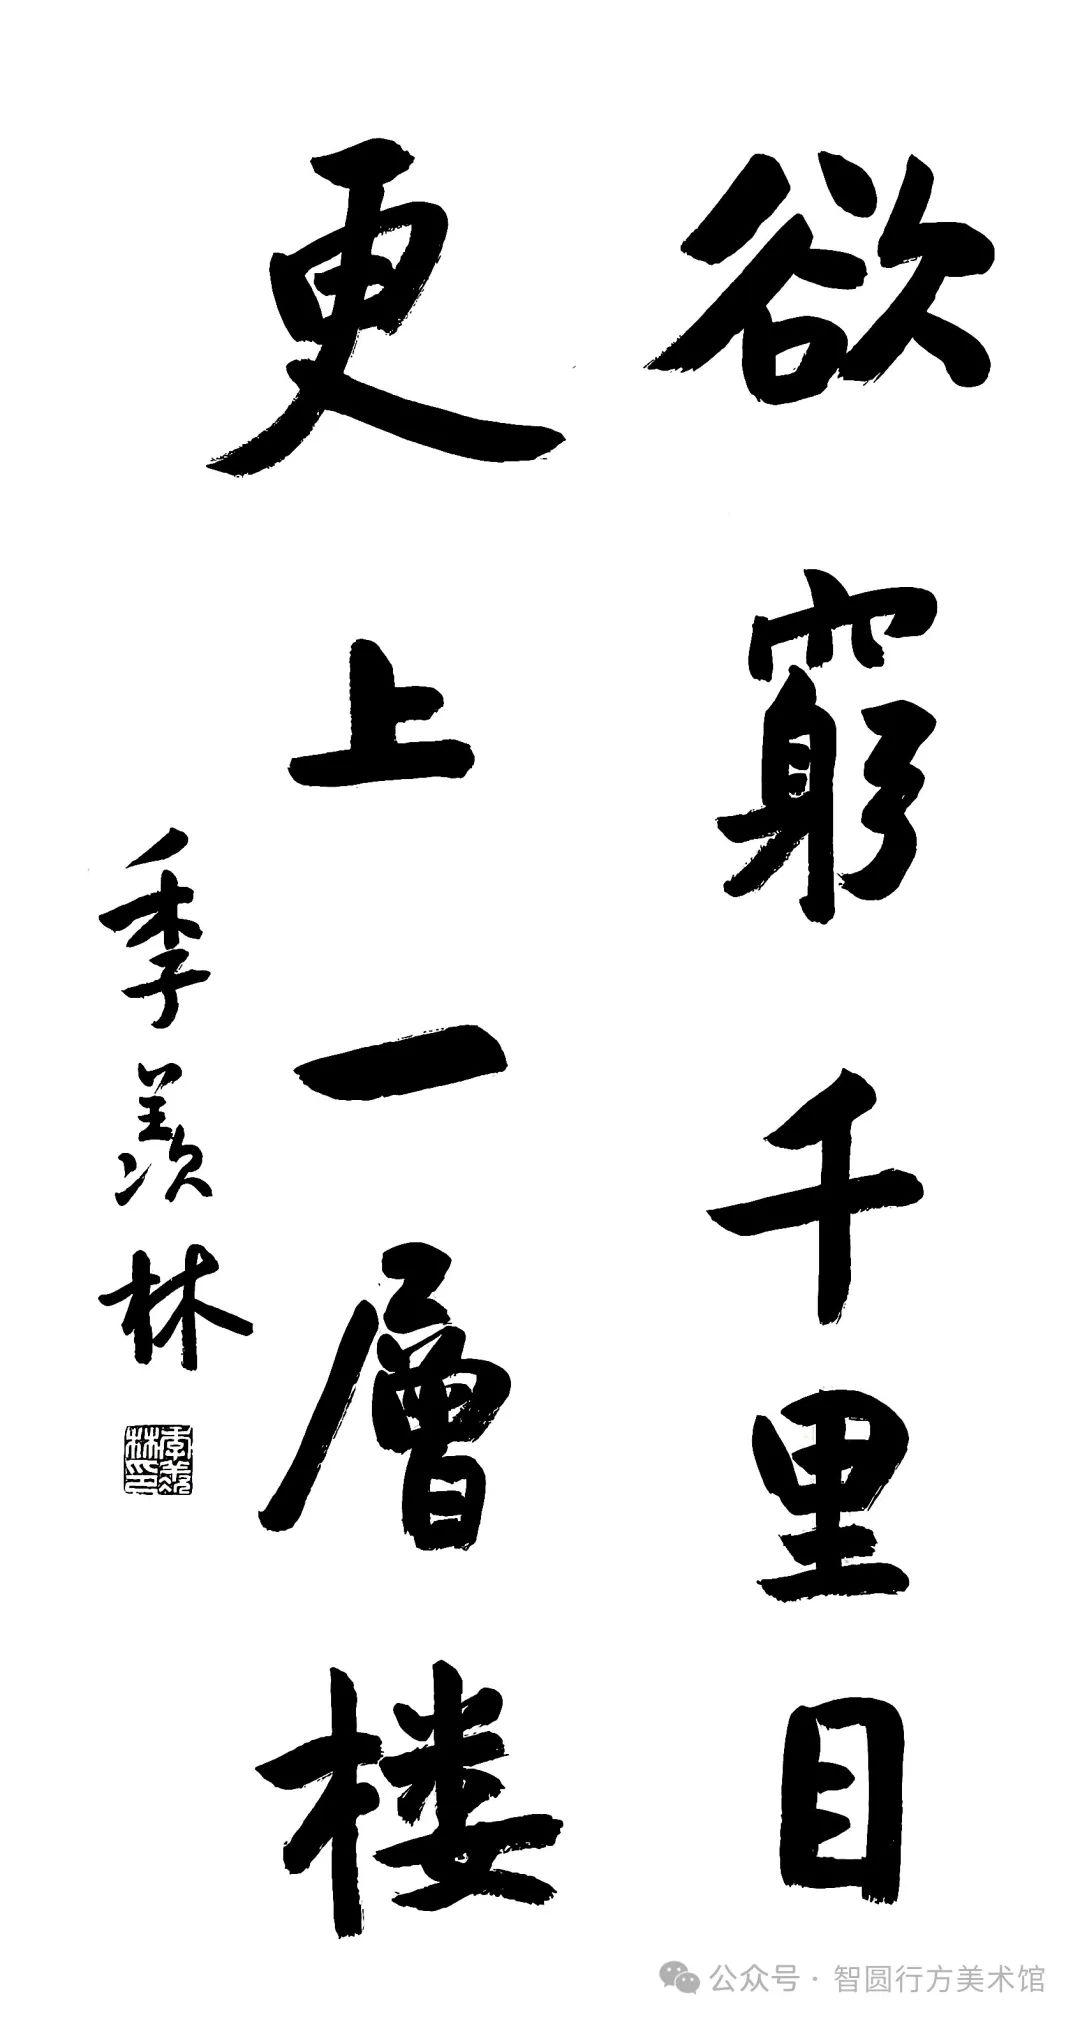 欲窮千里目
更上一層楼
季羡林
季羡林印
公众号·智圆行方美术馆